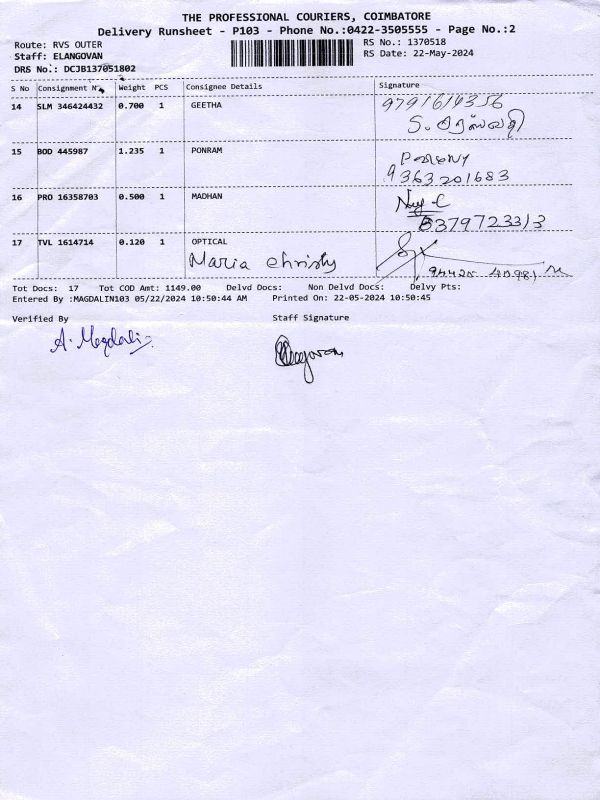 THE PROFESSIONAL COURIERS, COIMBATORE
Delivery Runsheet - P103 - Phone No.:0422-3505555 - Page No.:2
Route: RVS OUTER
RS No.: 1370518
Staff: ELANGOVAN
RS Date: 22-May-2024
DRS No.: DCJB137051802
S No Consignment N° Weight PCS Consignee Details Signature
14 SLM 346424432 0.700 1 GEETHA
15 BOD 445987 1.235 1 PONRAM
9363201683
16 PRO 16358703 0.500 1 MADHAN
8379723313
17 TVL 1614714 0.120 1 OPTICAL
Maria christy
Tot Docs: 17 Tot COD Amt: 1149.00 Delvd Docs: Non Delvd Docs: Delvy Pts:
Entered By :MAGDALIN103 05/22/2024 10:50:44 AM Printed On: 22-05-2024 10:50:45
Verified By Staff Signature
A. Magdalin